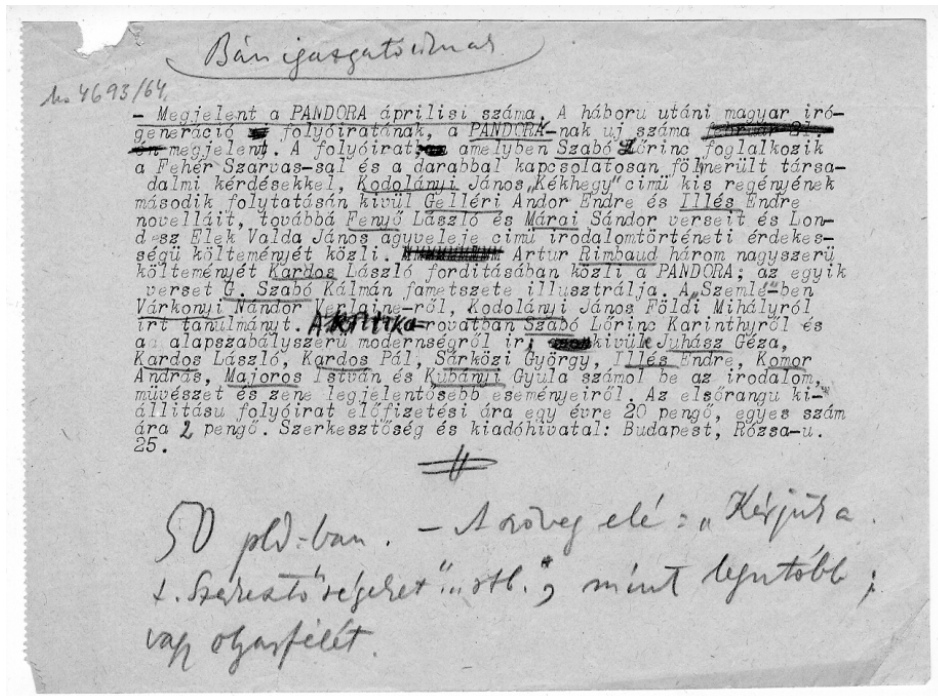 Bán igazgató úrnak
No 4693/64.
- Megjelent a PANDORA áprilisi száma. A háboru utáni magyar iró-
generáció folyóiratának, a PANDORA-nak uj száma
megjelent. A folyóirat, amelyben Szabó Lőrinc foglalkozik
a Fehér Szarvas-sal és a darabbal kapcsolatosan fölmerült társa-
dalmi kérdésekkel, Kodolányi János „Kékhegy" cimü kis regényének
második folytatásán kivül Gelléri Andor Endre és Illés Endre
novelláit, továbbá Fenyő László és Márai Sándor verseit és Lon-
desz Elek Valda János ágyveleje cimü irodalomtörténeti érdekes-
ségü költeményét közli. Artur Rimbaud három nagyszerü
költeményét Kardos László forditásában közli a PANDORA; az egyik
verset G. Szabó Kálmán fametszete illusztrálja. A „Szemle"-ben
Várkonyi Nándor Verlaine-ről, Kodolányi János Földi Mihályról
irt tanulmányt. A KRITIKA-rovatban Szabó Lőrinc Karinthyról és
az alapszabályszerü modernségről ir; kivülük Juhász Géza,
Kardos László, Kardos Pál, Sárközi György, Illés Endre, Komor
András, Majoros István és Kubányi Gyula számol be az irodalom,
müvészet és zene legjelentősebb eseményeiről. Az elsőrangu ki-
állitásu folyóirat előfizetési ára egy évre 20 pengő, egyes szám
ára 2 pengő. Szerkesztőség és kiadóhivatal: Budapest, Rózsa-u.
25.
50 pld-ban. - A szöveg elé: „Kérjük a
t. Szerkesztőségeket"... stb., mint legutóbb;
vagy olyasfélét.